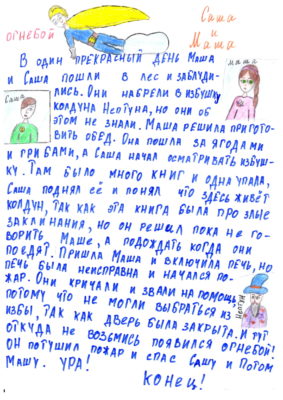 ОГНЕБОЙ
Саша
и
Маша
В ОДИН ПРЕКРАСНЫЙ ДЕНЬ МАША
И САША ПОШЛИ В ЛЕС И ЗАБЛУДИ-
ЛИСЬ. ОНИ НАБРЕЛИ В ИЗБУШКУ
КОЛДУНА НЕПТУНА, НО ОНИ ОБ
ЭТОМ НЕ ЗНАЛИ. МАША РЕШИЛА ПРИГОТО-
ВИТЬ ОБЕД. ОНА ПОШЛА ЗА ЯГОДАМИ
И ГРИБАМИ, А САША НАЧАЛ ОСМАТРИВАТЬ ИЗБУШ-
КУ. ТАМ БЫЛО МНОГО КНИГ И ОДНА УПАЛА,
САША ПОДНЯЛ ЕЁ И ПОНЯЛ ЧТО ЗДЕСЬ ЖИВЁТ
КОЛДУН, ТАК КАК ЭТА КНИГА БЫЛА ПРО ЗЛЫЕ
ЗАКЛИНАНИЯ, НО ОН РЕШИЛ ПОКА НЕ ГО-
ВОРИТЬ МАШЕ, А ПОДОЖДАТЬ КОГДА ОНИ
ПОЕДЯТ. ПРИШЛА МАША И ВКЛЮЧИЛА ПЕЧЬ, НО
ПЕЧЬ БЫЛА НЕИСПРАВНА И НАЧАЛСЯ ПО-
ЖАР. ОНИ КРИЧАЛИ И ЗВАЛИ НА ПОМОЩЬ,
ПОТОМУ ЧТО НЕ МОГЛИ ВЫБРАТЬСЯ ИЗ
ИЗБЫ, ТАК КАК ДВЕРЬ БЫЛА ЗАКРЫТА. И ТУТ
ОТКУДА НЕ ВОЗЬМИСЬ ПОЯВИЛСЯ ОГНЕБОЙ!
ОН ПОТУШИЛ ПОЖАР И СПАС САШУ И ПОТОМ
МАШУ. УРА!
КОНЕЦ!
Саша
маша
НЕПТУН